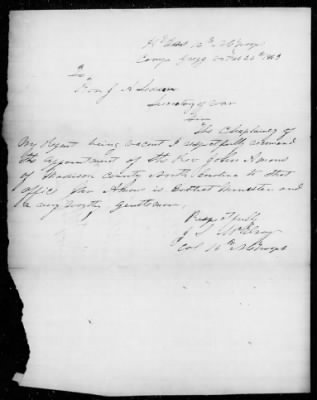 Hd Qrs 16th N C Troops
Camp Gregg Va Feb 26th 1863
To
Hon J A Seddon
Secretary of War
Sir
The Chaplaincy of
My Regmt being vacant I respectfully recommend
the appointment of the Rev John
of Madison County North Carolina to that
office Rev is Methodist Minister and
a very worthy gentleman.
Respectfully
J S McElroy
Col 16th N C Troops